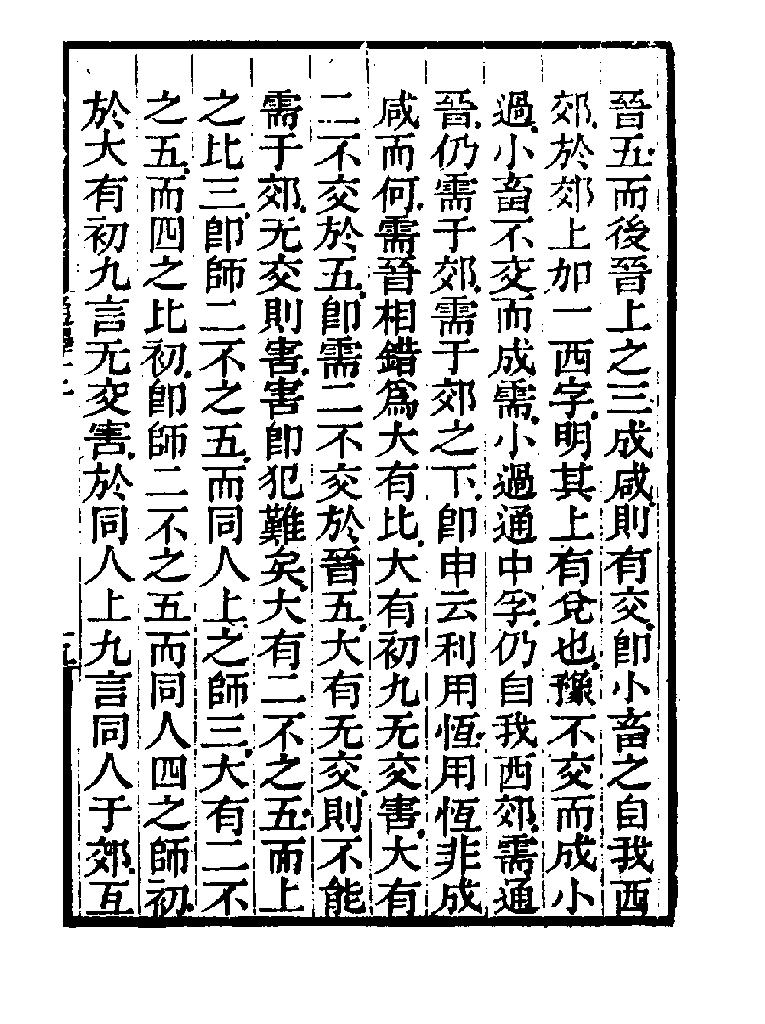 晉五而後晉上之三成咸則有交卽小畜之自我西
郊於郊上加一西字明其上有兌也豫不交而成小
過小畜不交而成需小過通中孚仍自我西郊需通
晉仍需于郊需于郊之下卽申云利用恆用恆非成
咸而何需晉相錯爲大有比大有初九无交害大有
二不交於五卽需二不交於晉五大有无交則不能
需于郊无交則害害卽犯難矣大有二不之五而上
之比三卽師二不之五而同人上之師三大有二不
之五而四之比初卽師二不之五而同人四之師初
於大有初九言无交害於同人上九言同人于郊互